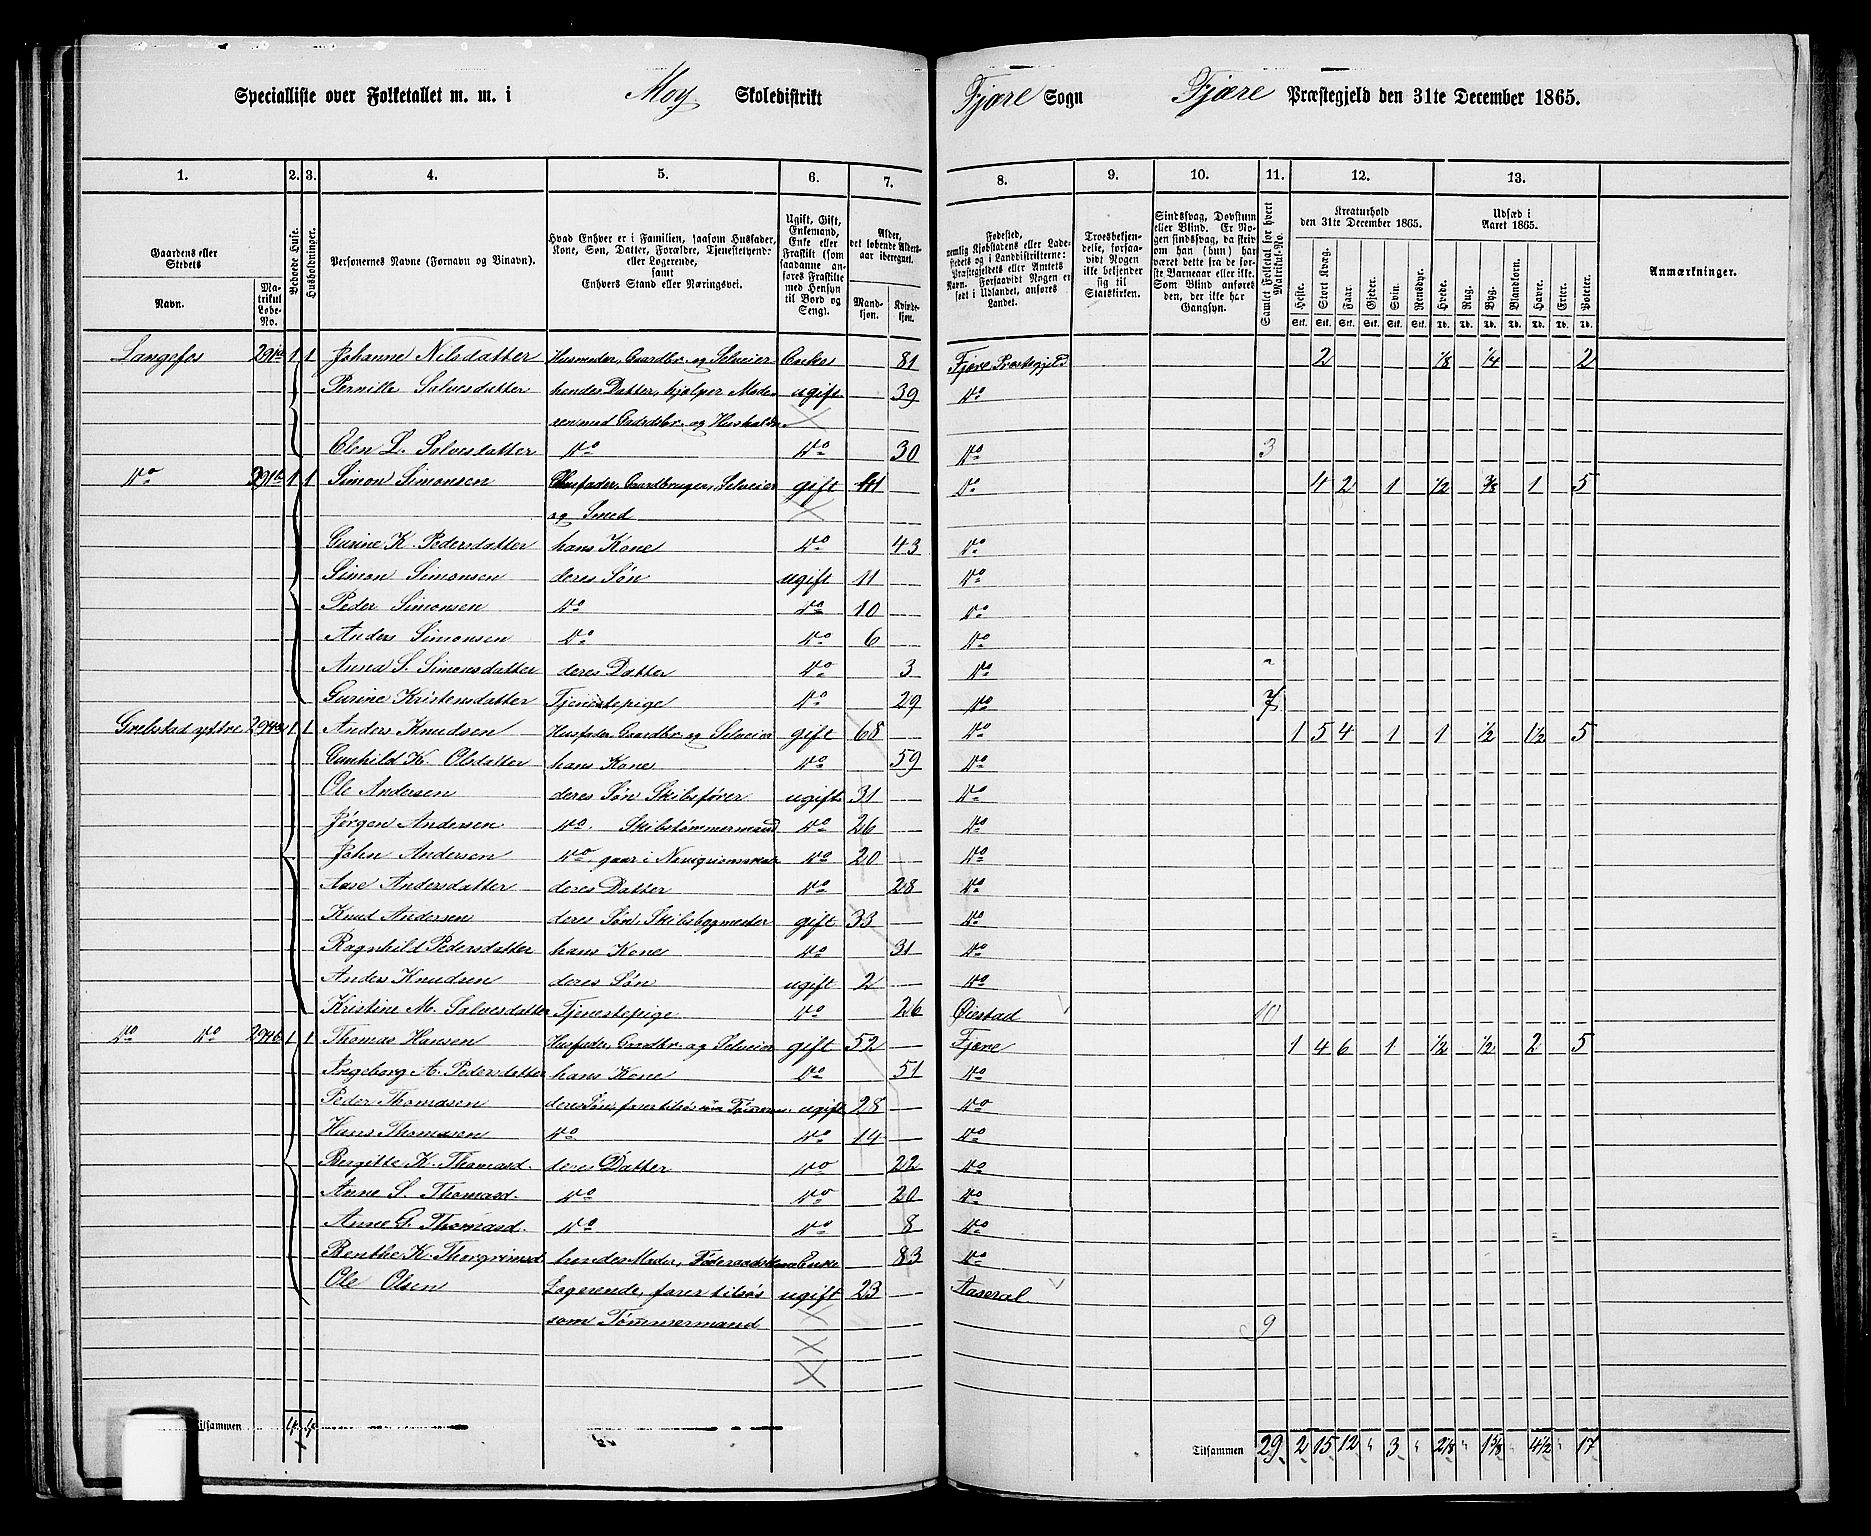 Specialliste over Folketallet m. m. i Moy Skoledistrikt Fjære Sogn Fjære Præstegjeld den 31te December 1865.
1. 2. 3. 4. 5. 6. 7. 8. 9. 10. 11. 12. 13.
Gaardens eller Stedets
Navn.
Matrikul Løbe-No.
Beboede Huse.
Husholdninger.
Personernes Navne (Fornavn og Binavn).
Hvad Enhver er i Familien, saasom Husfader, Kone, Søn, Datter, Forældre, Tjenestetyende eller Logerende, samt Enhvers Stand eller Næringsvei.
Ugift, Gift, Enkemand, Enke eller Fraskilt (som saadanne anføres Fraskilte med Hensyn til Bord og Seng).
Alder, det løbende Alders-aar iberegnet.
Mandkjøn.
Kvindekjøn.
Fødested, nemlig Kjøbstadens eller Ladestedets og i Landdistrikterne: Præstegjeldets eller Amtets Navn. Forsaavidt Nogen er født i Udlandet, anføres Landet.
Troesbekjendelse, forsaavidt Nogen ikke bekjender sig til Statskirken.
Sindssvag, Døvstum eller Blind. Er Nogen sindssvag, da skriv om han (hun) har været dette fra de første Barneaar eller ikke. Som Blind anføres den, der ikke har Gangsyn.
Samlet Folketal for hvert Matrikul-No.
Kreaturhold den 31te December 1865.
Heste. Stort Kvæg. Faar. Gjeder. Svin. Rensdyr.
Stk. Stk. Stk. Stk. Stk. Stk.
Udsæd i Aaret 1865.
Hvede. Rug. Byg. Blandkorn. Havre. Erter. Poteter.
Td. Td. Td. Td. Td. Td. Td.
Anmærkninger.
Langefos 291a 1 1 Johanne Nilsdatter Husmoder, Gaardbr. og Selveier Enke 81 Fjære Præstegjeld 2 1/8 1/4 2
Pernille Salvesdatter hendes Datter, hjælper Moderen ugift 39 Do
med Gaardsbr. og Husholdn.
Elen L. Salvesdatter Do Do 30 Do 3
Do 291b 1 1 Simon Simonsen Husfader, Gaardbruger, Selveier gift 41 Do 4 2 1 1/2 3/8 1 5
og Smed
Gurine K. Pedersdatter hans Kone Do 43 Do
Simon Simonsen deres Søn ugift 11 Do
Peder Simonsen Do Do 10 Do
Anders Simonsen Do Do 6 Do
Anna S. Simonsdatter deres Datter Do 3 Do
Gurine Kristensdatter Tjenestepige Do 29 Do 7
Grebstad yttre 294a 1 1 Anders Knudsen Husfader, Gaardbr. og Selveier gift 68 Do 1 5 4 1 1 1/2 1 1/2 5
Gunhild K. Olsdatter hans Kone Do 59 Do
Ole Andersen deres Søn Skibsfører ugift 31 Do
Jørgen Andersen Do Skibstømmermand Do 26 Do
John Andersen Do gaar i Do 20 Do
Aase Andersdatter deres Datter Do 28 Do
Knud Andersen deres Søn, Skibsbygmester gift 33 Do
Ragnhild Pedersdatter hans Kone Do 31 Do
Anders Knudsen deres Søn ugift 2 Do
Kristine M. Salvesdatter Tjenestepige Do 26 Øiestad 10
Do Do 294b 1 1 Thomas Hansen Husfader, Gaardbr. og Selveier gift 52 Fjære 1 4 6 1 1/2 1/2 2 5
Ingeborg A. Pedersdatter hans Kone Do 51 Do
Peder Thomasen deres Søn, farer tilsøs som ugift 28 Do
Hans Thomasen Do Do 14 Do
Bergitte K. Thomasd. deres Datter Do 22 Do
Anne S. Thomasd. Do Do 20 Do
Anne G. Thomasd. Do Do 8 Do
Benthe K. Thorgrimsd. hendes Moder, Føderaadskone Enke 83 Do
Ole Olsen Logerende, farer tilsøs ugift 23 Aaseral
som Tømmermand 9
Tilsammen 4 4 Tilsammen 29 2 15 12 " 3 " 2 1/8 " 1 5/8 " 4 1/2 " 17